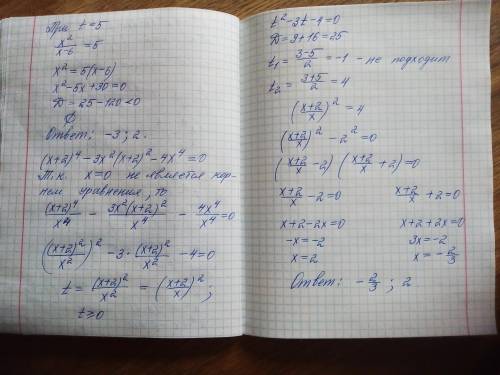 При t=5
x²/(x-6) = 5
x² = 5(x-6)
x² - 5x + 30 = 0
D = 25 - 120 < 0
∅
Ответ: -3; 2.
(x+2)⁴ - 3x²(x+2)² - 4x⁴ = 0
Т.к. x=0 не является кор-
нем уравнения, то
(x+2)⁴/x⁴ - 3x²(x+2)²/x⁴ - 4x⁴/x⁴ = 0
((x+2)²/x²)² - 3·(x+2)²/x² - 4 = 0
t = (x+2)²/x² = ((x+2)/x)²;
t ≥ 0
t² - 3t - 4 = 0
D = 9 + 16 = 25
t₁ = (3-5)/2 = -1 - не подходит
t₂ = (3+5)/2 = 4
((x+2)/x)² = 4
((x+2)/x)² - 2² = 0
((x+2)/x - 2) ((x+2)/x + 2) = 0
(x+2)/x - 2 = 0 (x+2)/x + 2 = 0
x + 2 - 2x = 0 x + 2 + 2x = 0
-x = -2 3x = -2
x = 2 x = -2/3
Ответ: -2/3; 2